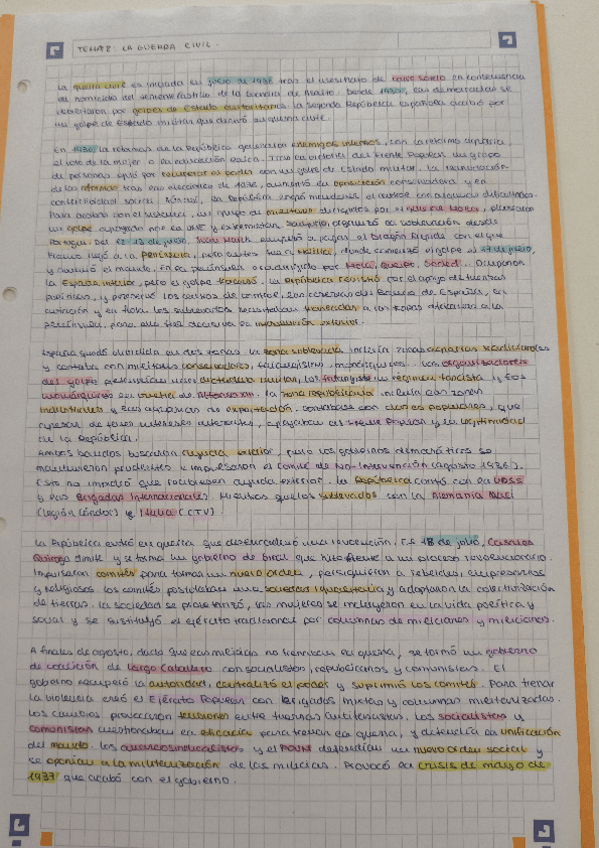 TEMA 8: LA GUERRA CIVIL.
La guerra civil es iniciada en julio de 1936 tras el asesinato de Calvo Sotelo en consecuencia
de homicidio del teniente Castillo de la Guardia de Asalto. Desde 1920, las democracias se
debilitaron por golpes de Estado autoritarios. La Segunda República española acabó por
un golpe de Estado militar que derivó en guerra civil.
En 1930, la reformas de la República generaron enemigos internos, con la reforma agraria,
el voto de la mujer o la educación laica. Tras la victoria del Frente Popular, un grupo
de personas optó por recuperar el poder con un golpe de Estado militar. La reanudación
de las reformas tras las elecciones de 1936, aumentó la oposición conservadora y la
conflictividad social. Azaña,
Para acabar con el régimen, un grupo de militares dirigidos por el general Mola, planearon
un golpe apoyado por la UME y extremistas. Sanjurjo organizó la sublevación desde
Portugal. Del 12-13 de julio, Juan March empezó a pagar el Dragón Rapide con el que
Franco llegó a la península, pero antes fue a Melilla, donde comenzó el golpe el 17 de julio,
y asumió el mando. En la península encabezado por Mola, Queipo, Saliquet. Ocuparon
la España interior, pero el golpe fracasó. La República resistió por el apoyo de fuerzas
políticas, y preservó los centros de poder, con reservas del Banco de España, la
aviación y la flota. Los sublevados necesitaban transportar a las tropas africanas a la
península, para ello fue decisiva la intervención exterior.
España quedó dividida en dos zonas. La zona sublevada incluía zonas agrarias tradicionales
y contaba con militares conservadores, falangistas, monárquicos... Los organizadores
del golpe pretendían una dictadura militar, los falangistas un régimen fascista y los
monárquicos la vuelta de Alfonso XIII. La zona republicana incluía las zonas
industriales y las agrarias de exportación, contaba con clases populares, que
a pesar de tener intereses diferentes, apoyaban al Frente Popular y la legitimidad
de la República.
Ambos bandos buscaron ayuda exterior, pero los gobiernos democráticos se
mantuvieron prudentes e impulsaron el Comité de No-Intervención (agosto 1936).
Esto no impidió que recibiesen ayuda exterior. La República contó con la URSS
y las Brigadas Internacionales. Mientras que los sublevados con la Alemania Nazi
(Legión Cóndor) y Italia (CTV).
La República entró en guerra que desencadenó una revolución. El 18 de julio, Casares
Quiroga dimite y se forma un gobierno de Giral que hizo frente a un proceso revolucionario.
Impulsaron comités para formar un nuevo orden, persiguieron a rebeldes, empresarios
y religiosos. Los comités postulaban una sociedad igualitaria y adoptaron la colectivización
de tierras. La sociedad se proletarizó, las mujeres se incluyeron en la vida política y
social y se sustituyó el ejército tradicional por columnas de milicianos y milicianas.
A finales de agosto, dado que las milicias no frenaban la guerra, se formó un gobierno
de coalición de Largo Caballero con socialistas, republicanos y comunistas. El
gobierno recuperó la autoridad, centralizó el poder y suprimió los comités. Para frenar
la violencia creó el Ejército Popular con brigadas mixtas y columnas militarizadas.
Los cambios provocaron tensiones entre fuerzas antifascistas. Los socialistas y
comunistas cuestionaban la eficacia para frenar la guerra, y defendía la unificación
del mando. Los anarcosindicalistas y el POUM defendían un nuevo orden social y
se oponían a la militarización de las milicias. Provocó la crisis de mayo de
1937 que acabó con el gobierno.